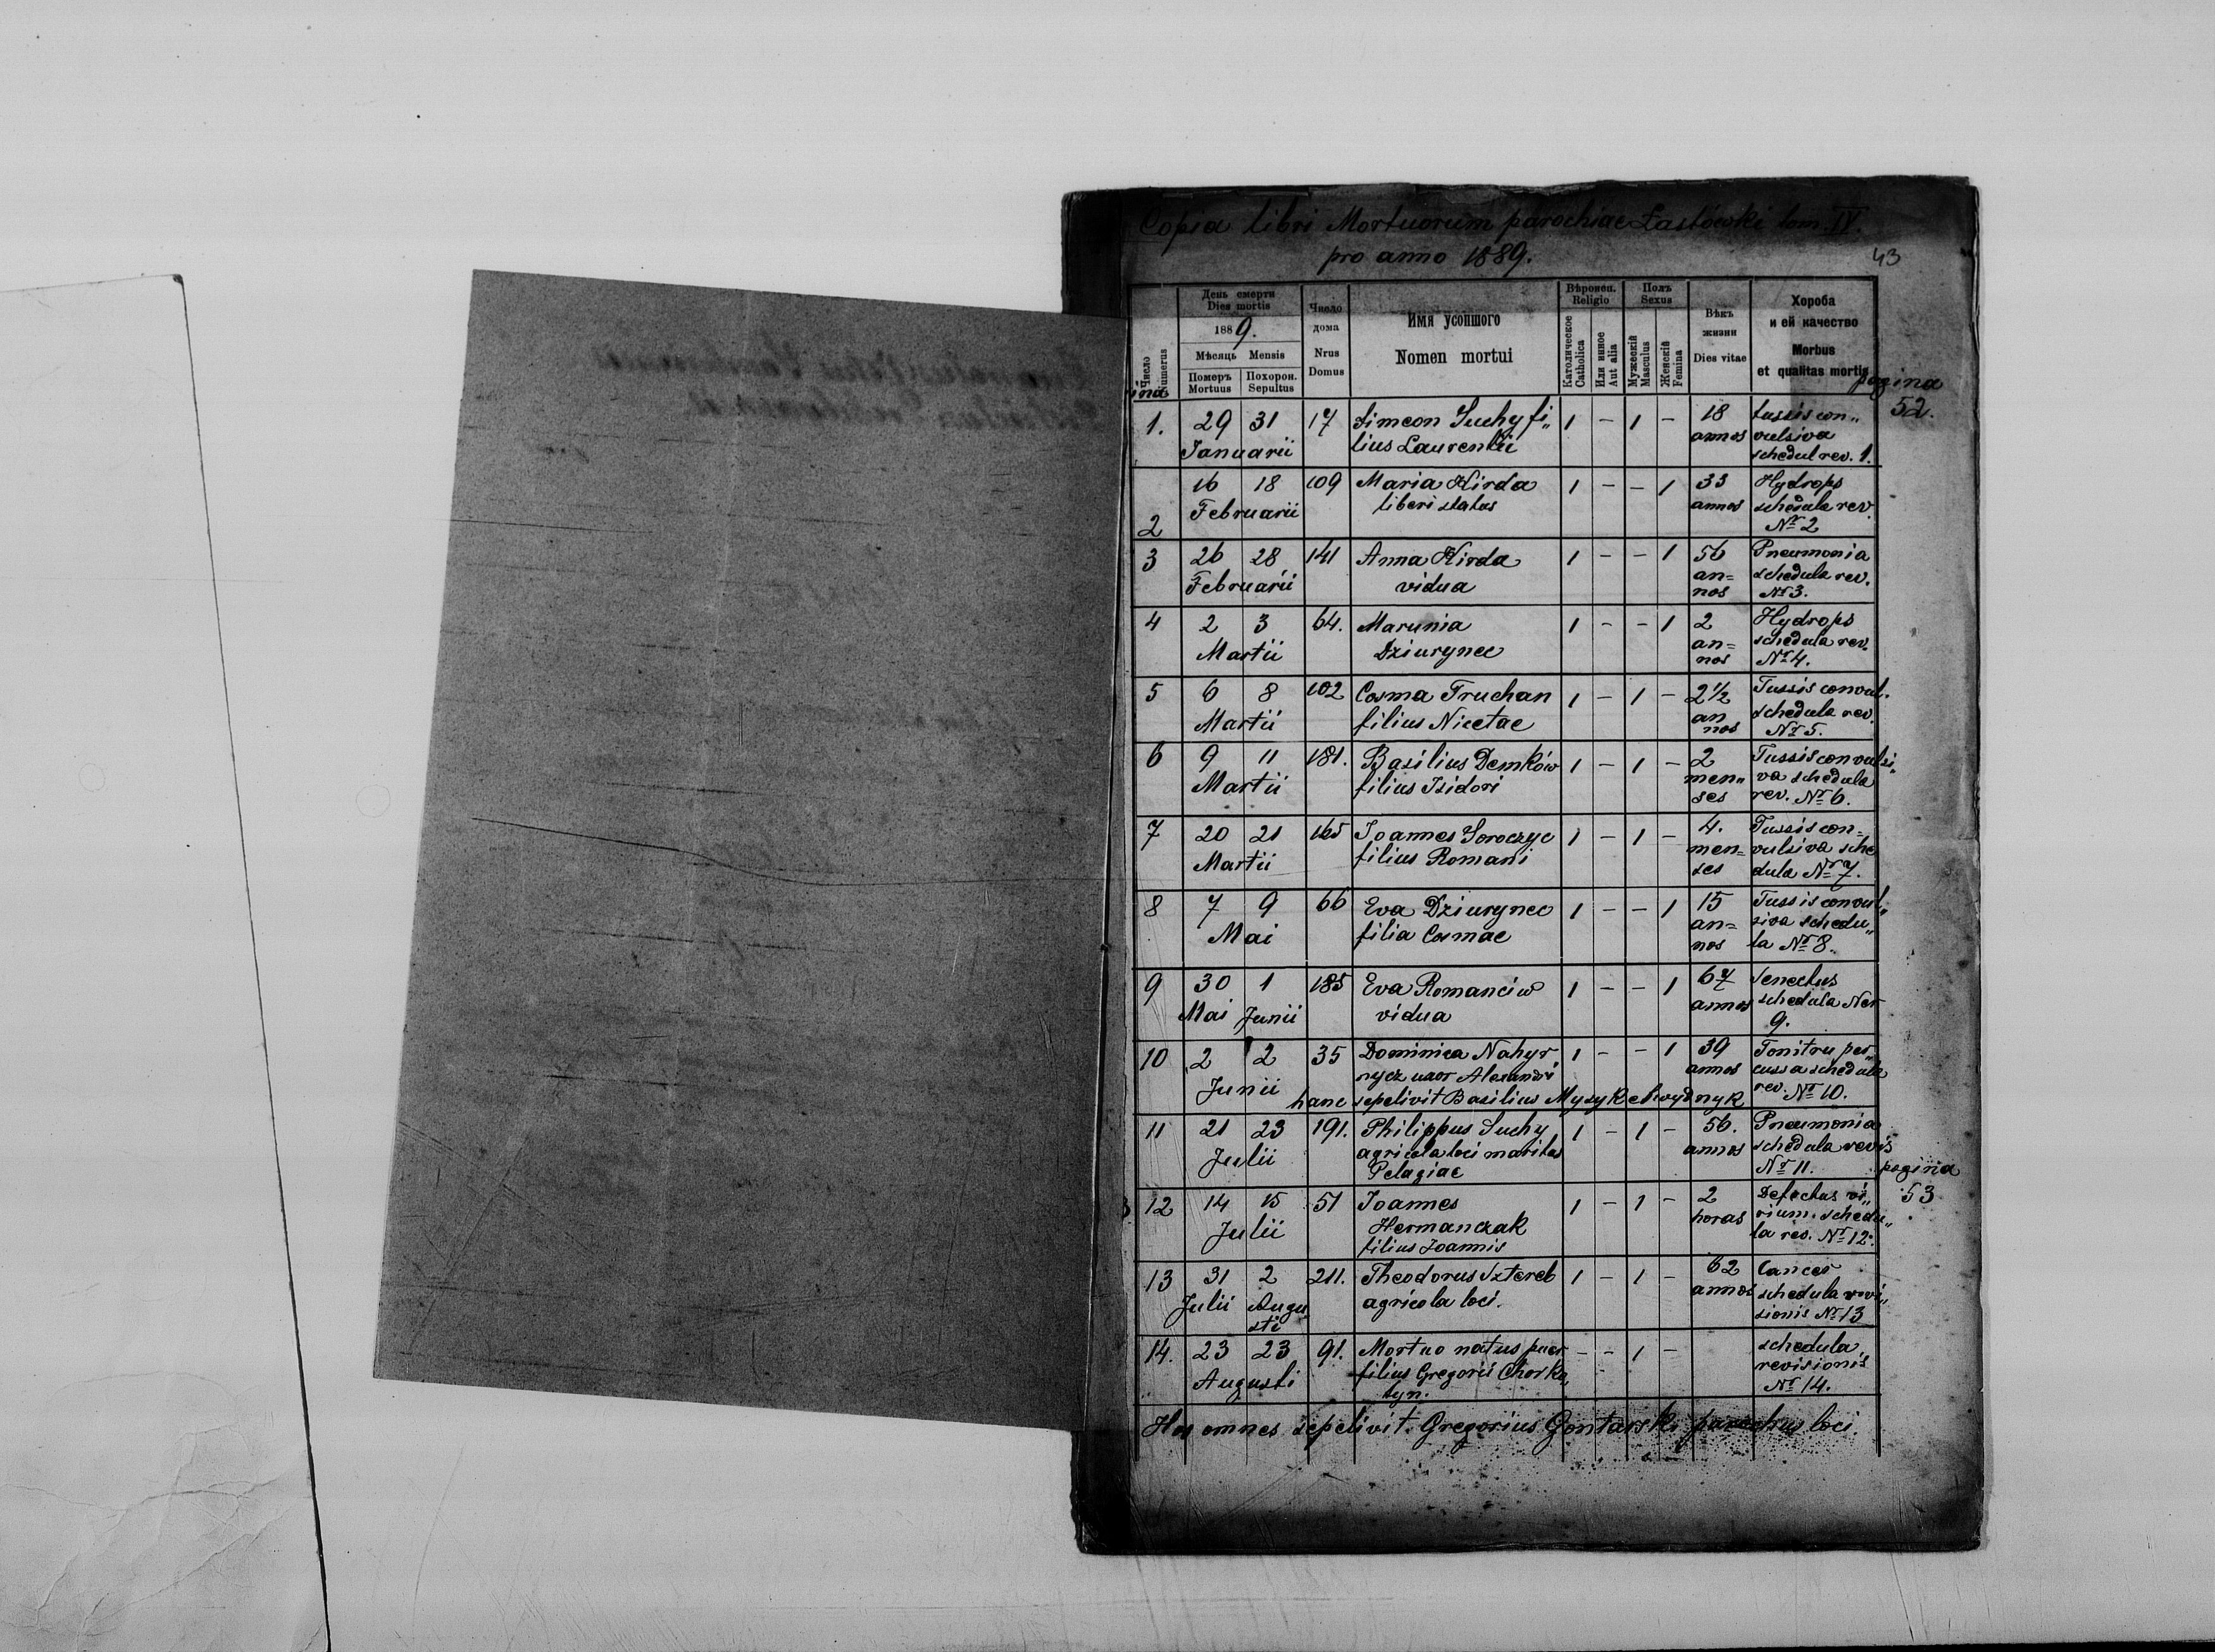 Copia libri Mortuorum parochiae Łastówki tom. IV.
pro anno 1889.
43
Число
Numerus
День смерти
Dies mortis
1889.
Мѣсяць Mensis
Померъ
Mortuus
Похорон.
Sepultus
Число
дома
Nrus
Domus
Имя усопшого
Nomen mortui
Вѣроисп.
Religio
Католическое
Catholica
Или инное
Aut alia
Полъ
Sexus
Мужескій
Masculus
Женскій
Femina
Вѣкъ
жизни
Dies vitae
Хороба
и ей качество
Morbus
et qualitas mortis
pagina
52.
1. 29 31 17 Simeon Suchy fi„ 1 – 1 – 18 tussis con„
Januarii lius Laurentii annos vulsiva
schedul rev. 1.
16 18 109 Maria Hirda 1 – – 1 33 Hydrops
Februarii liberi status annos schedula rev.
2 Nr 2
3 26 28 141 Anna Hirda 1 – – 1 56 Pneumonia
Februarii vidua an= schedula rev.
nos Nr 3.
4 2 3 64. Marunia 1 – – 1 2 Hydrops
Martii Dziurynec an= schedula rev.
nos Nr 4.
5 6 8 102 Cosma Truchan 1 – 1 – 2 1/2 Tussis convul.
Martii filius Nicetae an schedula rev.
nos Nr 5.
6 9 11 181. Basilius Demków 1 – 1 – 2 Tussis convulsi„
Martii filius Isidori men„ va schedula
ses rev. Nr 6.
7 20 21 165 Joannes Soroczyc 1 – 1 – 4. Tussis con=
Martii filius Romani men= vulsiva sche
ses dula Nr 7.
8 7 9 66 Eva Dziurynec 1 – – 1 15 Tussis convul„
Mai filia Cosmae an= siva schedu„
nos la Nr 8.
9 30 1 185 Eva Romanciw 1 – – 1 67 Senectus
Mai Junii vidua annos schedula Ner
9.
10 2 2 35 Dominica Nahyr 1 – – 1 39 Tonitru per„
Junii nycz uxor Alexandri annos cussa schedula
hanc sepelivit Basilius Mysyk rev. Nr 10.
11 21 23 191. Philippus Suchy 1 – 1 – 56. Pneumonia
Julii agricola loci maritus annos schedula revis
Pelagiae Nr 11.
pagina
53
12 14 15 51 Joannes 1 – 1 – 2 Defectus vi„
Julii Hermanczak horas rium. schedu„
filius Joannis la rev. Nr 12.
13 31 2 211. Theodorus Sztereb 1 – 1 – 62 Cancer
Julii Augu agricola loci. annos schedula revi„
sti sionis Nr 13
14. 23 23 91. Mortuo natus puer – – 1 – schedula
Augusti filius Gregorii Chorka„ revisionis
tyn. Nr 14.
Hos omnes sepelivit Gregorius Gontarski parochus loci.